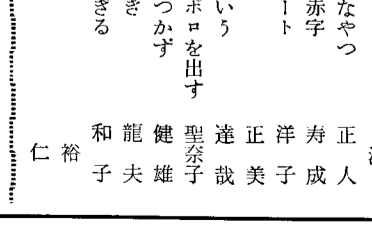 なやつ　正人
赤字　寿成
ート　洋子
正美
いう　達哉
ボロを出す　聖奈子
つかず　健雄
ぎ　龍夫
ぎる　和子
裕
仁